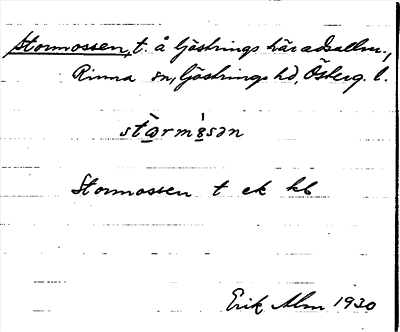 Stormossen, t. å Göstrings häradsallm.,
Rinna sn, Göstrings hd, Österg. l.
stǫrmǫsən
Stormossen t ek kb
Erik Alm 1930